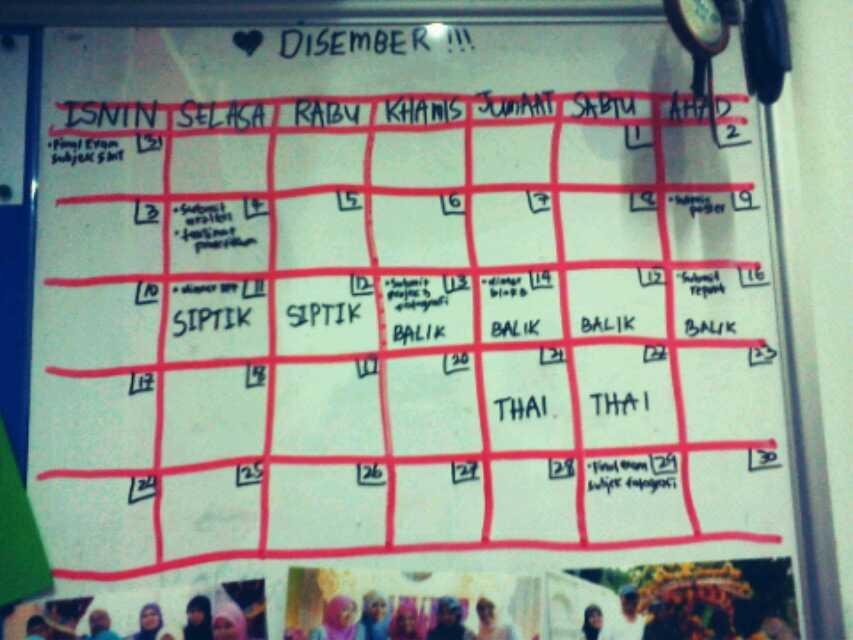 ♥ DISEMBER !!!
ISNIN SELASA RABU KHAMIS JUMAAT SABTU AHAD
31 1 2
• Final Exam
subjek
3 4 5 6 7 8 9
• Submit
poster
10 11 12 13 14 15 16
• Submit
• dinner
• Submit
report
SIPTIK SIPTIK BALIK BALIK BALIK BALIK
17 18 19 20 21 22 23
THAI THAI
24 25 26 27 28 29 30
• Final exam
subjek fotografi